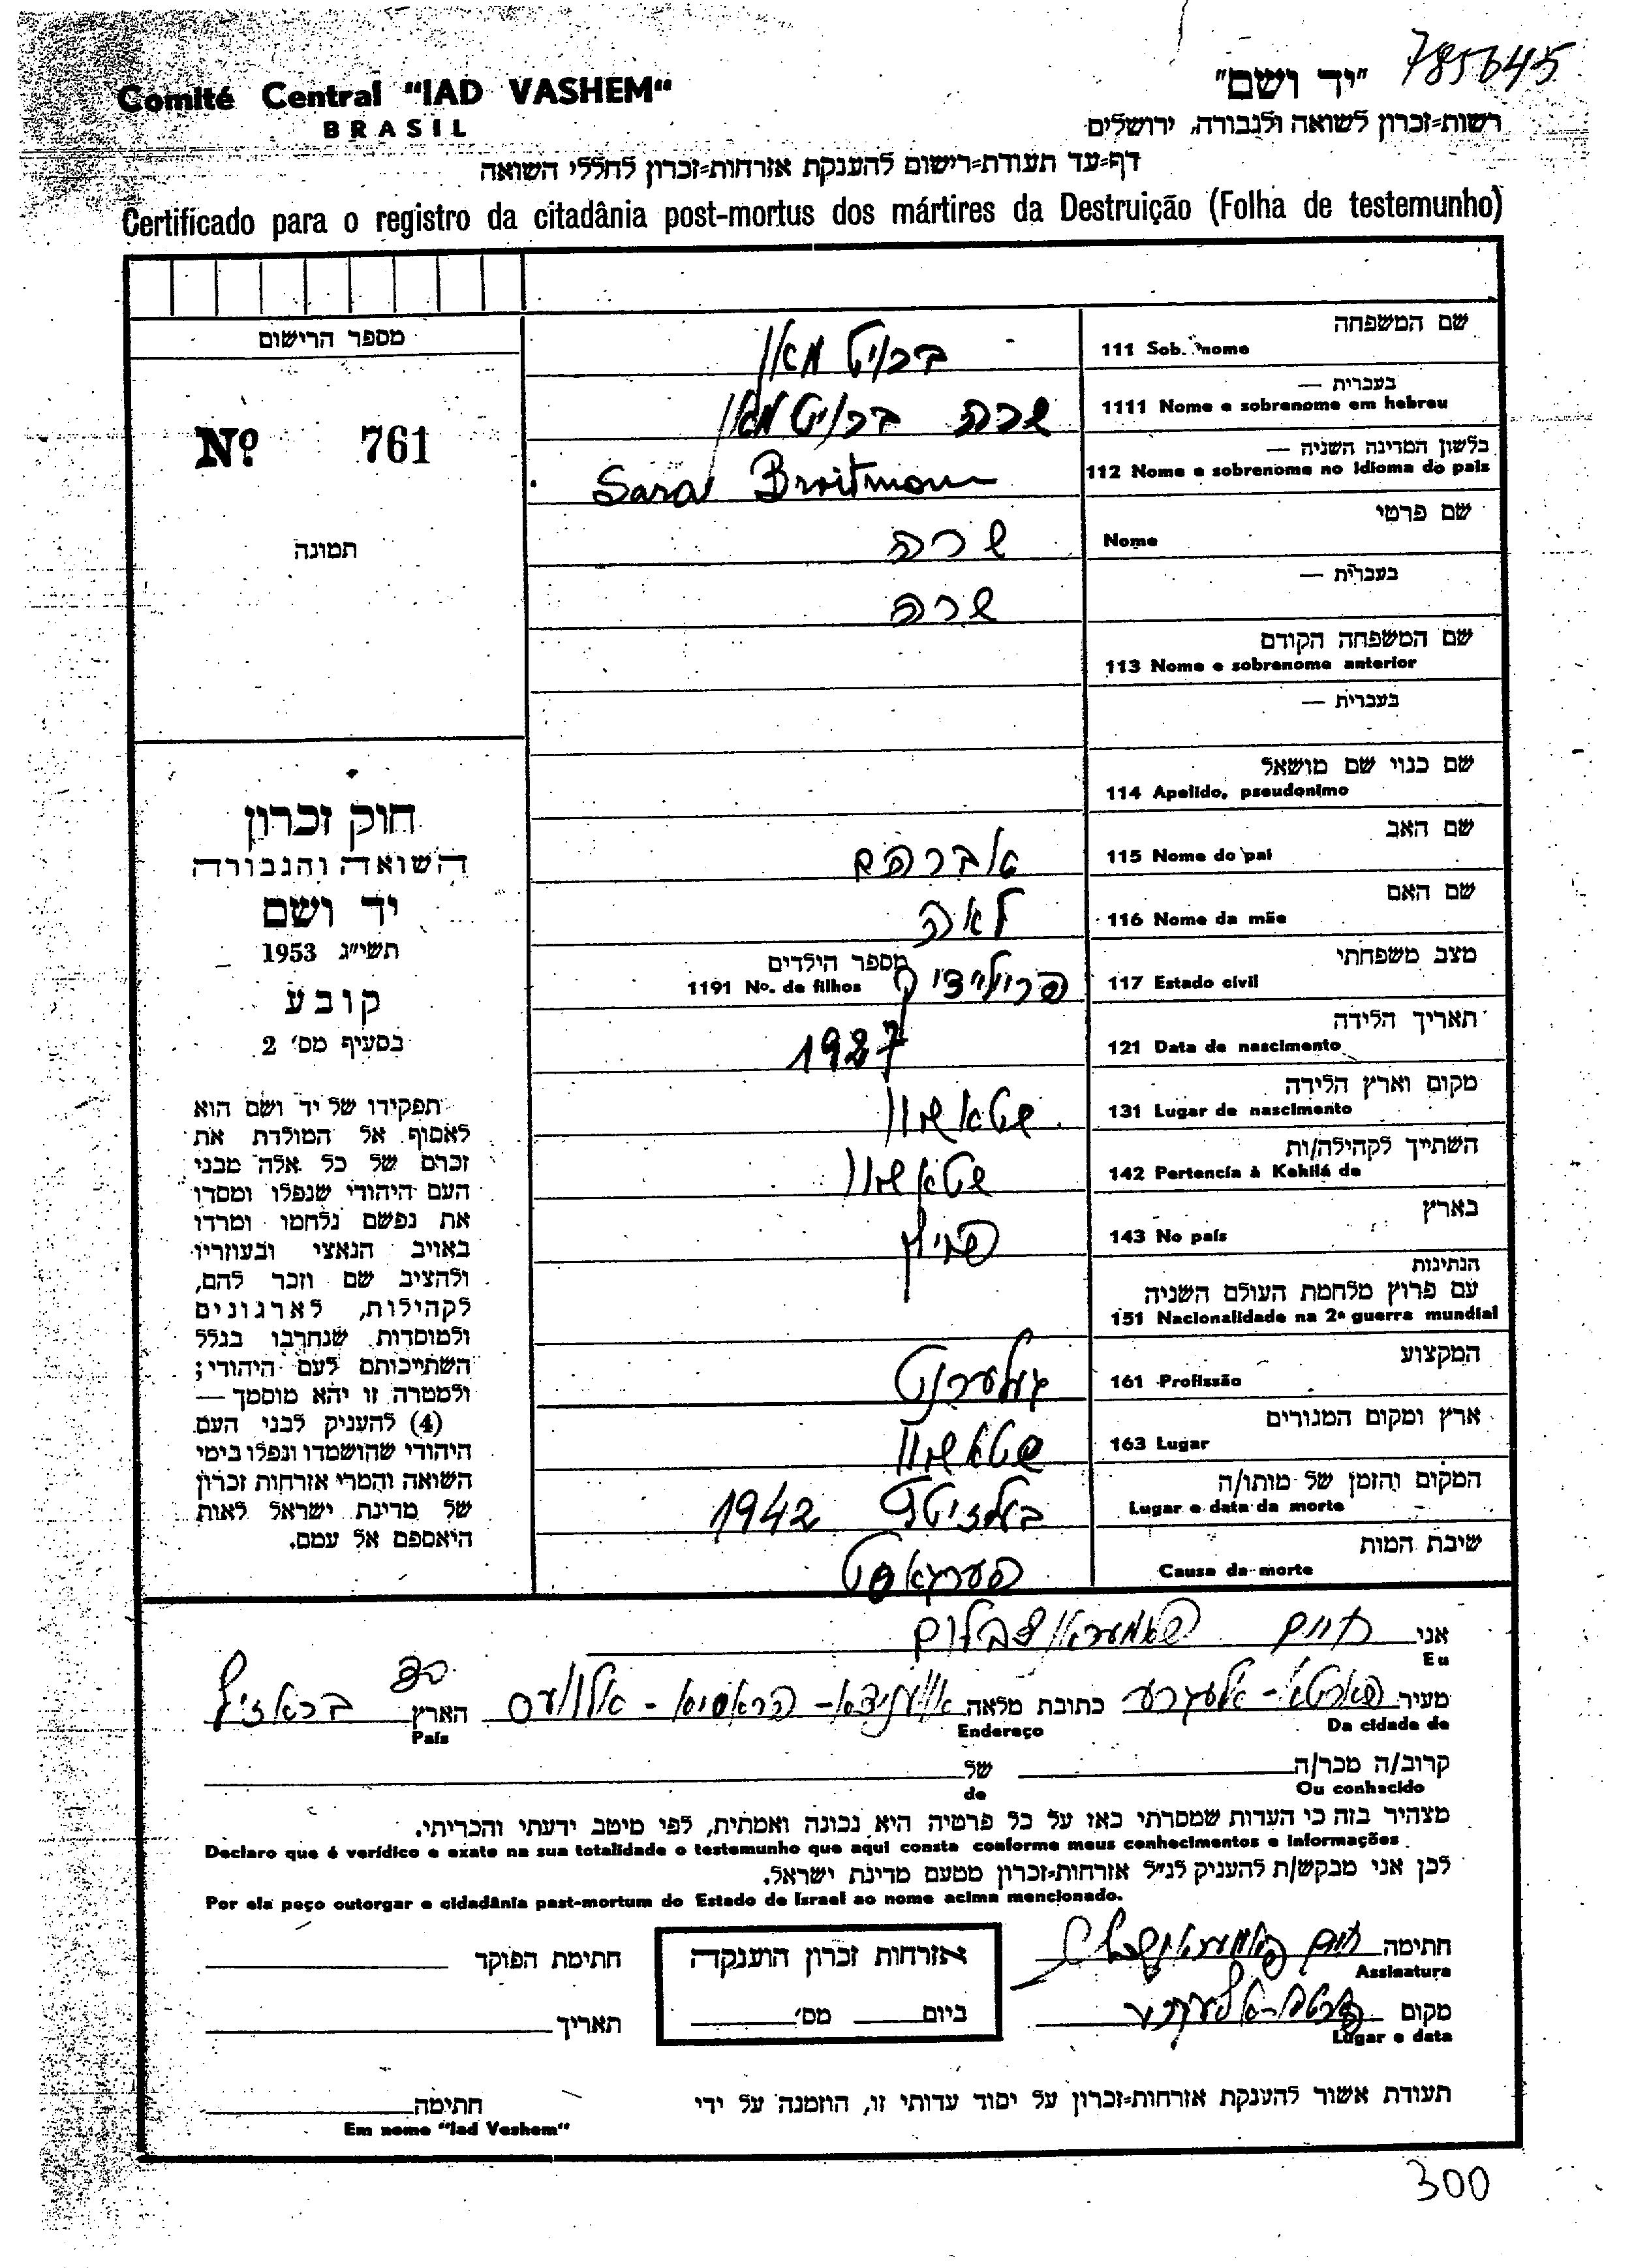 Comité Central "IAD VASHEM"
BRASIL
"יד ושם" 785645
רשות=זכרון לשואה ולגבורה, ירושלים
דף=עד תעודת=רישום להענקת אזרחות=זכרון לחללי השואה
Certificado para o registro da citadânia post-mortus dos mártires da Destruição (Folha de testemunho)
שם המשפחה
111 Sob. nome ברויטמאן
בעברית —
1111 Nome e sobrenome em hebreu שרה ברויטמאן
בלשון המדינה השניה —
112 Nome e sobrenome no idioma do pais Sara Broitman
שם פרטי
Nome שרה
בעברית —
שרה
שם המשפחה הקודם
113 Nome e sobrenome anterior
בעברית —
שם כנוי שם מושאל
114 Apelido, pseudonimo
שם האב
115 Nome do pai אברהם
שם האם
116 Nome da mãe לאה
מצב משפחתי
117 Estado civil פרוילידיק
מספר הילדים
1191 Nº. de filhos
תאריך הלידה
121 Data de nascimento 1927
מקום וארץ הלידה
131 Lugar de nascimento
השתייך לקהילה/ות
142 Pertencia à Kehilá de
בארץ
143 No país פוילן
הנתינות
עם פרוץ מלחמת העולם השניה
151 Nacionalidade na 2ª guerra mundial
המקצוע
161 Profissão
ארץ ומקום המגורים
163 Lugar
המקום והזמן של מותו/ה
Lugar e data da morte 1942
שיבת המות
Causa da morte
מספר הרישום
Nº 761
תמונה
חוק זכרון
השואה והגבורה
יד ושם
תשי״ג 1953
קובע
בסעיף מס' 2
תפקידו של יד ושם הוא
לאסוף אל המולדת את
זכרם של כל אלה מבני
העם היהודי שנפלו ומסרו
את נפשם נלחמו ומרדו
באויב הנאצי ובעוזריו
ולהציב שם וזכר להם,
לקהילות, לארגונים
ולמוסדות שנחרבו בגלל
השתייכותם לעם היהודי;
ולמטרה זו יהא מוסמך —
(4) להעניק לבני העם
היהודי שהושמדו ונפלו בימי
השואה והמרי אזרחות זכרון
של מדינת ישראל לאות
היאספם אל עמם.
אני חיים
Eu
מעיר פארטא-אלעגרע כתובת מלאה הארץ בראזיל
Da cidade de Endereço País
קרוב/ה מכר/ה של
Ou conhacido de
מצהיר בזה כי העדות שמסרתי כאז על כל פרטיה היא נכונה ואמתית, לפי מיטב ידעתי והכריתי.
Declaro que é verídico e exate na sua totalidade o testemunho que aqui consta conforme meus conhecimentos e informações
לכן אני מבקש/ת להעניק לנ״ל אזרחות=זכרון מטעם מדינת ישראל.
Por ela peço outorgar e cidadânia past-mortum do Estado de Israel ao nome acima mencionado.
חתימה חיים
Assinatura
מקום פארטא-אלעגרע
Lugar e data
אזרחות זכרון הוענקה
ביום מס'
חתימת הפוקד
תאריך
תעודת אשור להענקת אזרחות=זכרון על יסוד עדותי זו, הוזמנה על ידי
חתימה
Em nome "Iad Veshem"
300